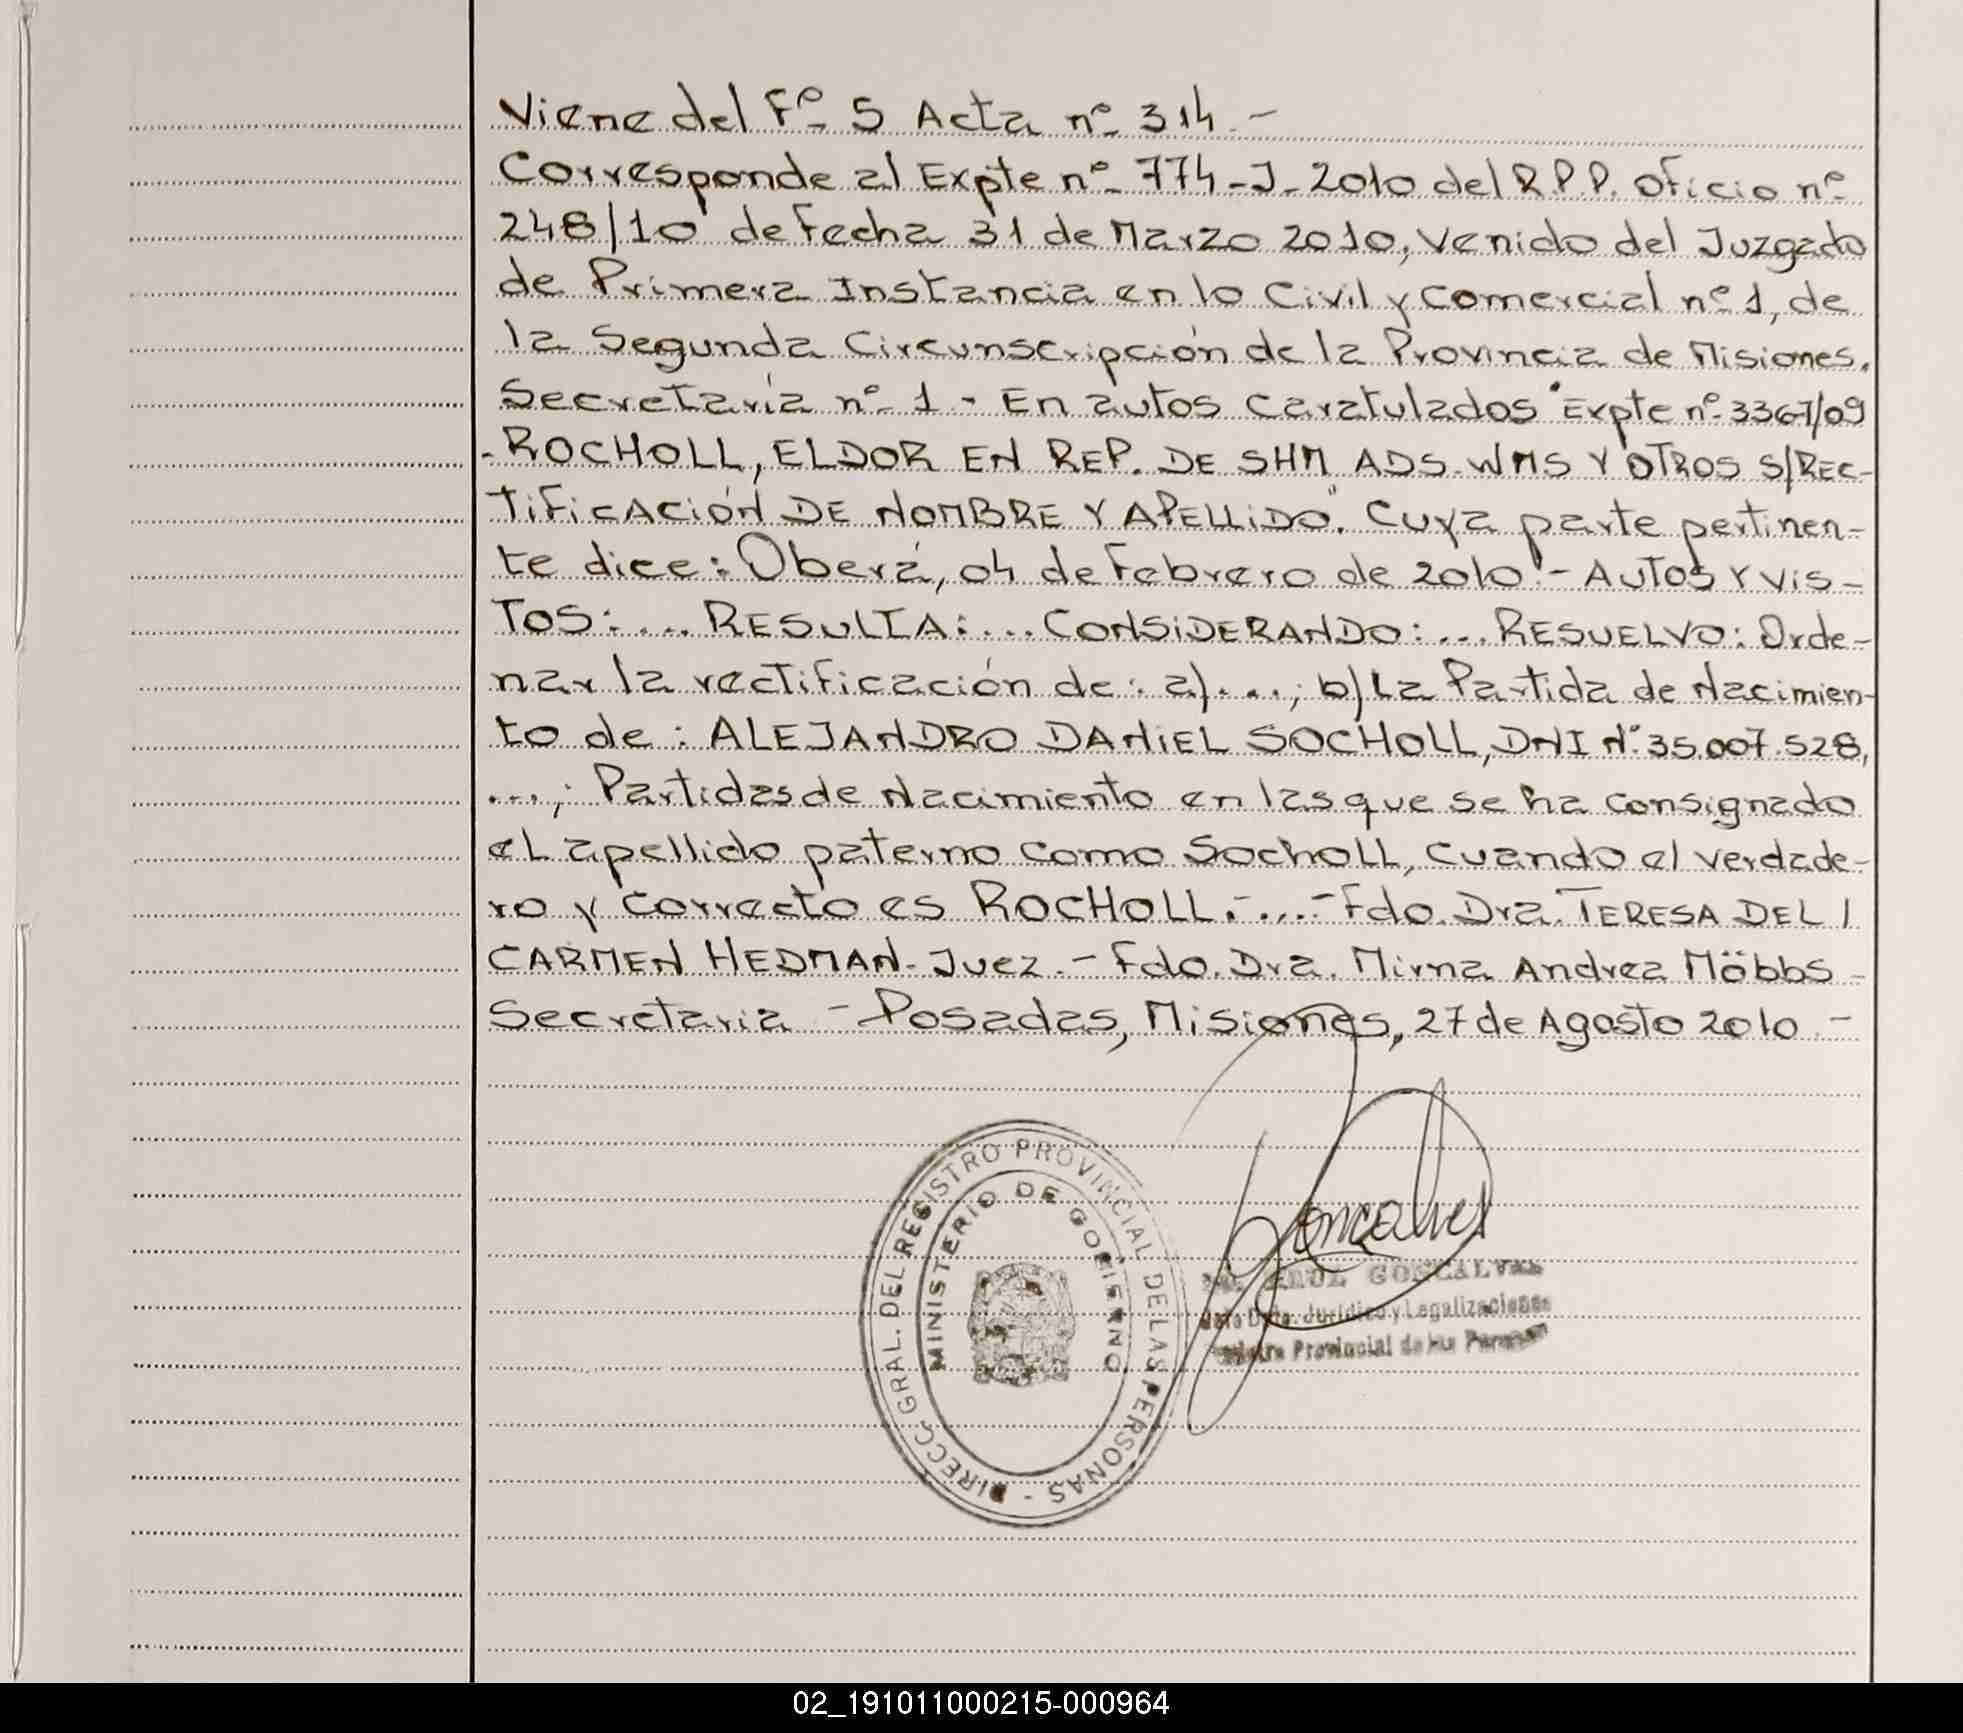 Viene del Fº 5 Acta nº 314.-
Corresponde al Expte nº 774-J-2010 del R.P.P. Oficio nº
248/10 de fecha 31 de Marzo 2010, venido del Juzgado
de Primera Instancia en lo Civil y Comercial nº 1, de
la Segunda Circunscripción de la Provincia de Misiones.
Secretaría nº 1 - En autos caratulados "Expte nº 3367/09
-ROCHOLL, ELDOR EN REP. DE SHM ADS. WMS Y OTROS S/REC-
TIFICACIÓN DE NOMBRE Y APELLIDO". Cuya parte pertinen-
te dice: Oberá, 04 de Febrero de 2010.- AUTOS Y VIS-
TOS:... RESULTA:... CONSIDERANDO:... RESUELVO: Orde-
nar la rectificación de: a)...; b) La Partida de Nacimien-
to de: ALEJANDRO DANIEL SOCHOLL, DNI Nº 35.007.528,
...; Partidas de Nacimiento en las que se ha consignado
el apellido paterno como Socholl, cuando el verdade-
ro y correcto es ROCHOLL.-...- Fdo. Dra. TERESA DEL
CARMEN HEDMAN. Juez.- Fdo. Dra. Mirna Andrea Möbbs
Secretaria - Posadas, Misiones, 27 de Agosto 2010.-
DIRECC. GRAL. DEL REGISTRO PROVINCIAL DE LAS PERSONAS -
MINISTERIO DE GOBIERNO
Goncalves
GONCALVES
Jefe Dpto. Jurídico y Legalizaciones
Provincial de las Personas
02_191011000215-000964